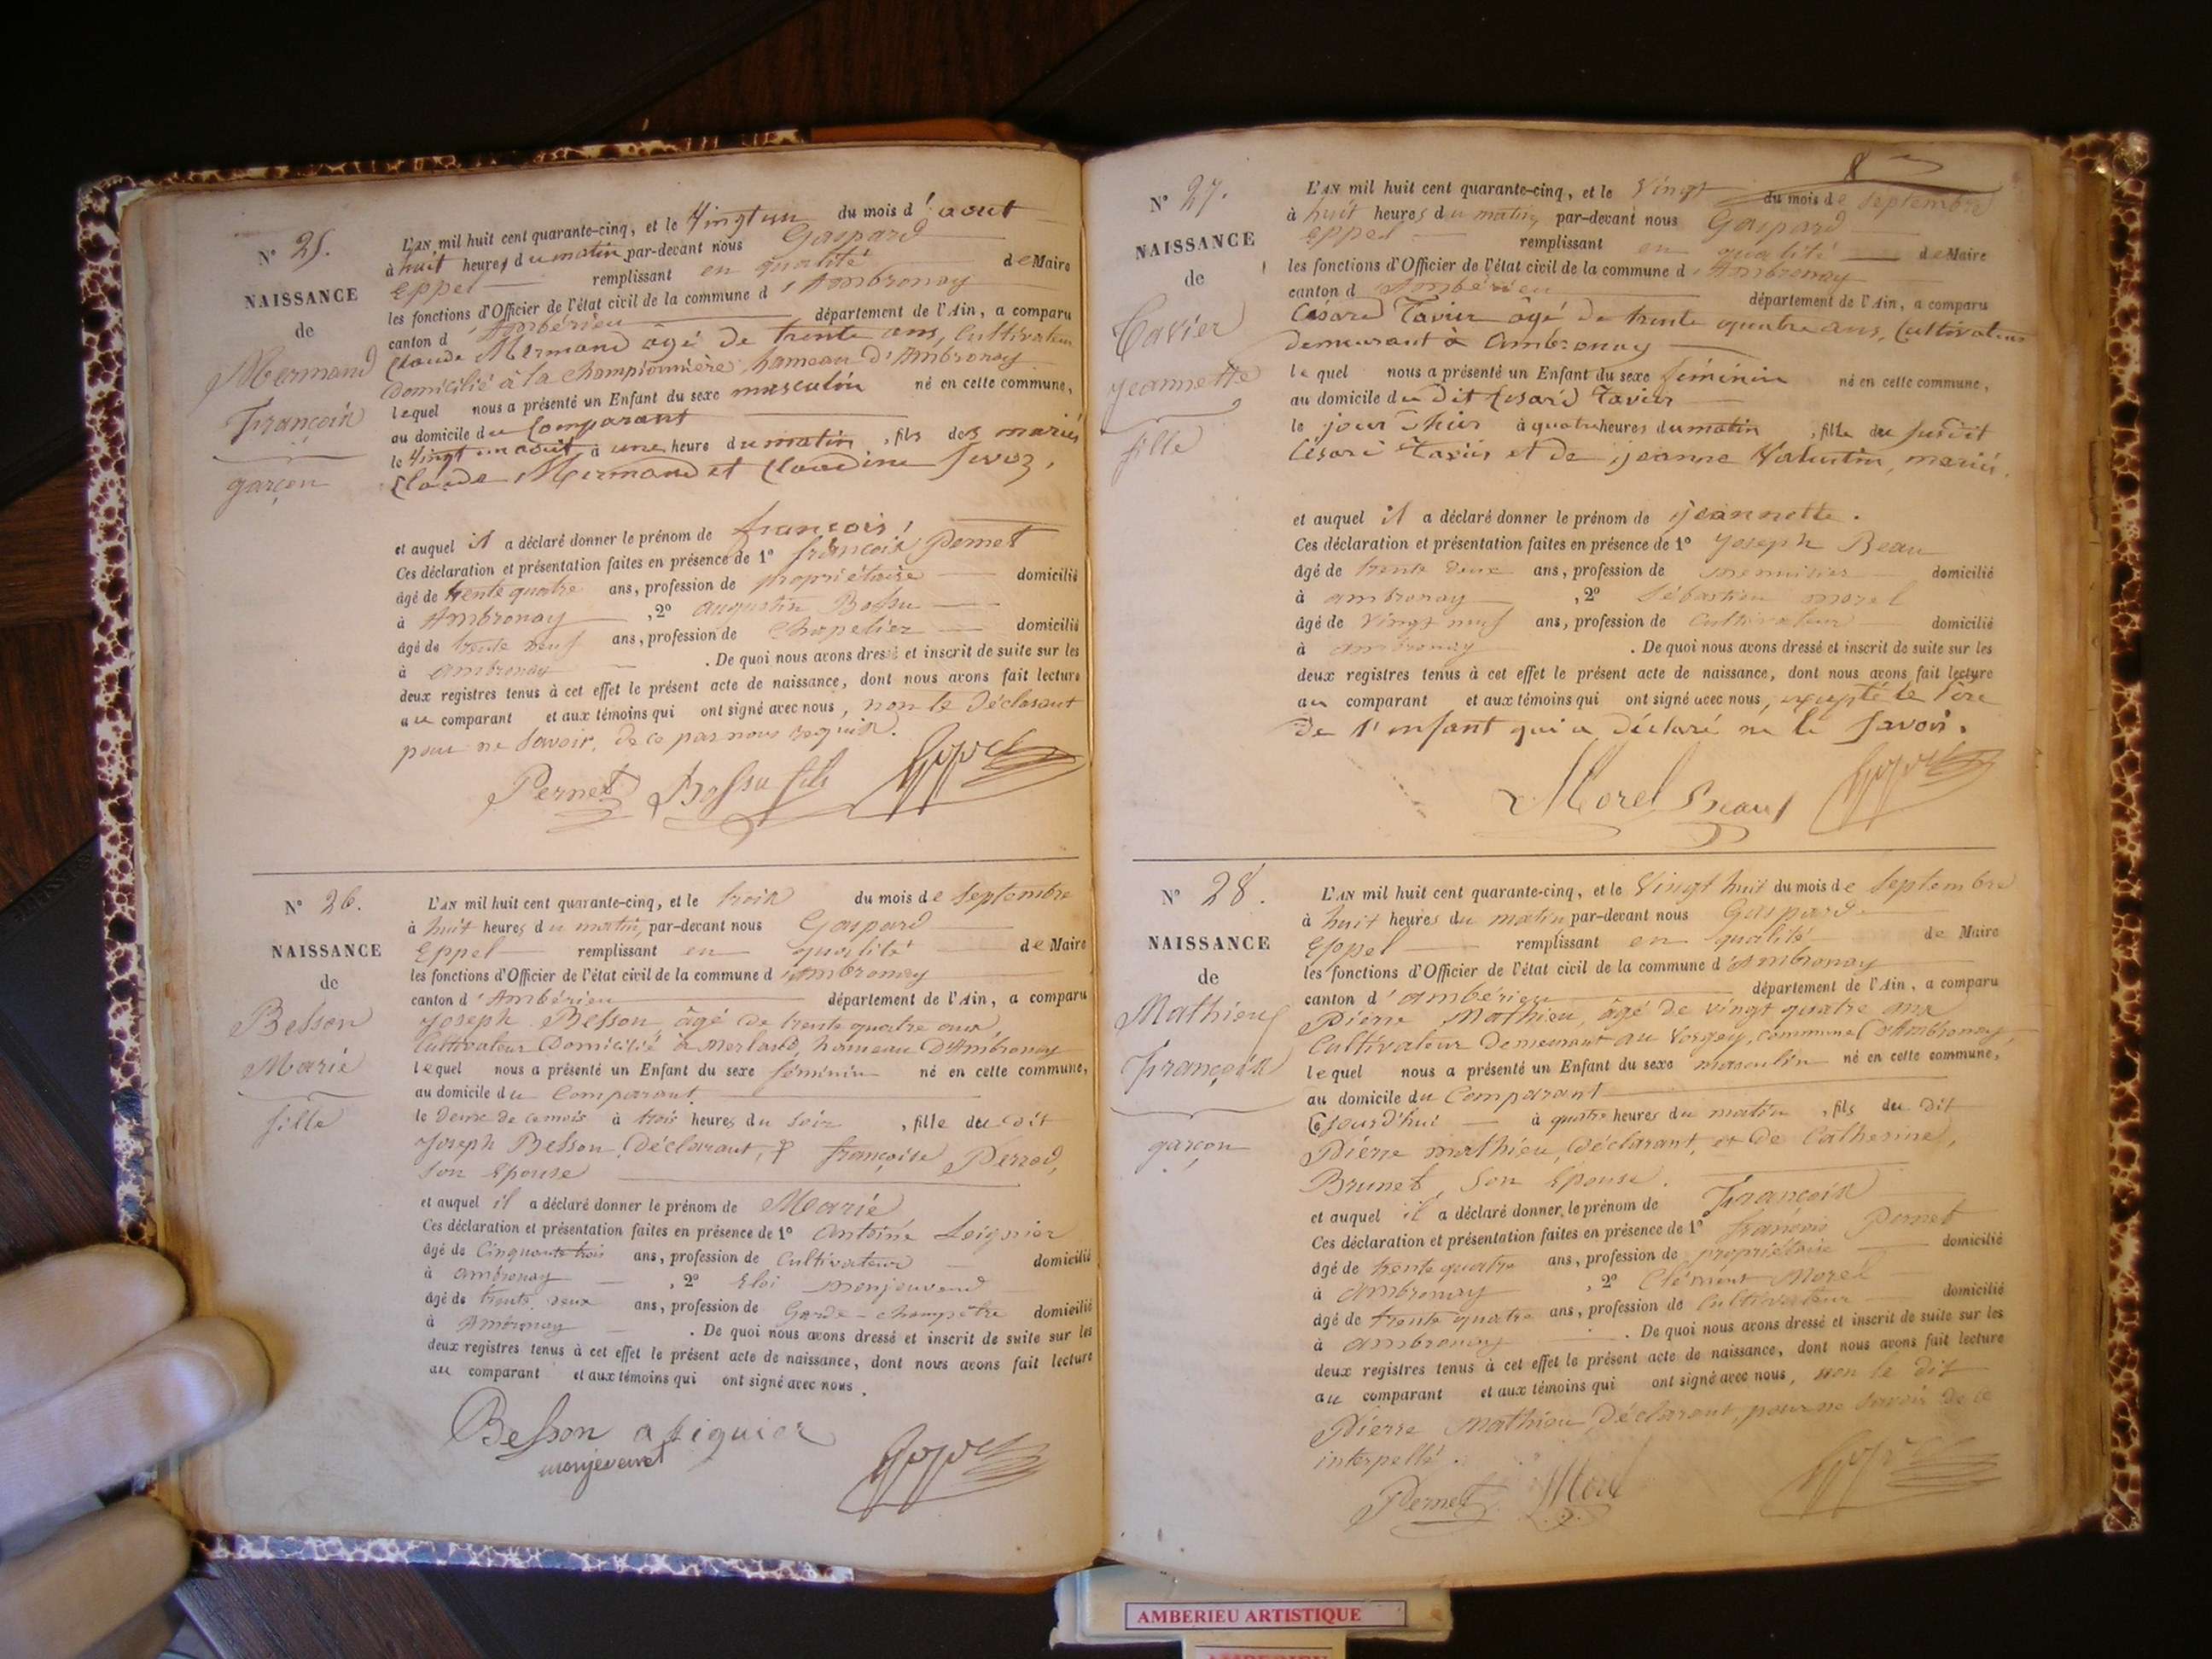 N° 25.
NAISSANCE
de
Mermand
François
garçon
L'AN mil huit cent quarante-cinq, et le Vingt un du mois d'aout
à huit heures du matin par-devant nous Gaspard
Eppel remplissant en qualité de Maire
les fonctions d'Officier de l'état civil de la commune d'Ambronay
canton d'Ambérieu département de l'Ain, a comparu
Claude Mermand agé de trente ans, Cultivateur
Domicilié à la Championnière, hameau d'Ambronay
lequel nous a présenté un Enfant du sexe masculin né en cette commune,
au domicile du Comparant
le Vingt un aout à une heure du matin, fils des mariés
Claude Mermand et Claudine
et auquel il a déclaré donner le prénom de françois,
Ces déclaration et présentation faites en présence de 1° françois Pernet
âgé de trente quatre ans, profession de propriétaire domicilié
à Ambronay, 2° augustin Bossu
âgé de trente neuf ans, profession de Chapelier domicilié
à ambronay. De quoi nous avons dressé et inscrit de suite sur les
deux registres tenus à cet effet le présent acte de naissance, dont nous avons fait lecture
au comparant et aux témoins qui ont signé avec nous, non le Déclarant
pour ne Savoir, de ce par nous requis.
Pernet Bossu fils
N° 26.
NAISSANCE
de
Besson
Marie
fille
L'AN mil huit cent quarante-cinq, et le trois du mois de Septembre
à huit heures du matin, par-devant nous Gaspard
Eppel remplissant en qualité de Maire
les fonctions d'Officier de l'état civil de la commune d'Ambronay
canton d'Ambérieu département de l'Ain, a comparu
Joseph Besson, âgé de trente quatre ans,
Cultivateur Domicilié à Merland, hameau D'Ambronay
lequel nous a présenté un Enfant du sexe féminin né en cette commune,
au domicile du Comparant
le Deux de ce mois à trois heures du soir, fille du dit
Joseph Besson, Déclarant, & françoise Perrod,
Son Epouse
et auquel il a déclaré donner le prénom de Marie
Ces déclaration et présentation faites en présence de 1° Antoine
âgé de Cinquante trois ans, profession de Cultivateur domicilié
à ambronay, 2° Eloi
âgé de trente deux ans, profession de Garde-champêtre domicilié
à Ambronay. De quoi nous avons dressé et inscrit de suite sur les
deux registres tenus à cet effet le présent acte de naissance, dont nous avons fait lecture
au comparant et aux témoins qui ont signé avec nous.
Besson
8
N° 27.
NAISSANCE
de
Tavier
Jeannette
fille
L'AN mil huit cent quarante-cinq, et le Vingt du mois de Septembre
à huit heures du matin, par-devant nous Gaspard
Eppel remplissant en qualité de Maire
les fonctions d'Officier de l'état civil de la commune d'Ambronay
canton d'Ambérieu département de l'Ain, a comparu
Césard Tavier âgé de trente quatre ans, Cultivateur
demeurant à Ambronay
lequel nous a présenté un Enfant du sexe féminin né en cette commune,
au domicile du Dit Césard Tavier
le jour d'hier à quatre heures du matin, fille du susdit
Césard Tavier et de jeanne Valentin, mariés.
et auquel il a déclaré donner le prénom de jeannette.
Ces déclaration et présentation faites en présence de 1° Joseph Beau
âgé de trente deux ans, profession de menuisier domicilié
à ambronay, 2° Sébastien morel
âgé de Vingt neuf ans, profession de Cultivateur domicilié
à ambronay. De quoi nous avons dressé et inscrit de suite sur les
deux registres tenus à cet effet le présent acte de naissance, dont nous avons fait lecture
au comparant et aux témoins qui ont signé avec nous, excepté le Père
De l'enfant qui a déclaré ne le savoir.
Morel Beau
N° 28.
NAISSANCE
de
Mathieu
François
garçon
L'AN mil huit cent quarante-cinq, et le Vingt huit du mois de Septembre
à huit heures du matin par-devant nous Gaspard
Eppel remplissant en qualité de Maire
les fonctions d'Officier de l'état civil de la commune d'Ambronay
canton d'ambérieu département de l'Ain, a comparu
Pierre Mathieu, âgé de vingt quatre ans
Cultivateur Demeurant au commune d'Ambronay,
lequel nous a présenté un Enfant du sexe masculin né en cette commune,
au domicile du Comparant
Cejourd'hui à quatre heures du matin, fils du dit
Pierre mathieu, Déclarant, et de Catherine
Brunet, Son Epouse.
et auquel il a déclaré donner le prénom de François
Ces déclaration et présentation faites en présence de 1° françois Pernet
âgé de trente quatre ans, profession de propriétaire domicilié
à Ambronay, 2° Clément Morel
âgé de trente quatre ans, profession de Cultivateur domicilié
à ambronay. De quoi nous avons dressé et inscrit de suite sur les
deux registres tenus à cet effet le présent acte de naissance, dont nous avons fait lecture
au comparant et aux témoins qui ont signé avec nous, non le dit
Pierre Mathieu, Déclarant, pour ne savoir de ce
interpellé.
Pernet Morel
AMBERIEU ARTISTIQUE